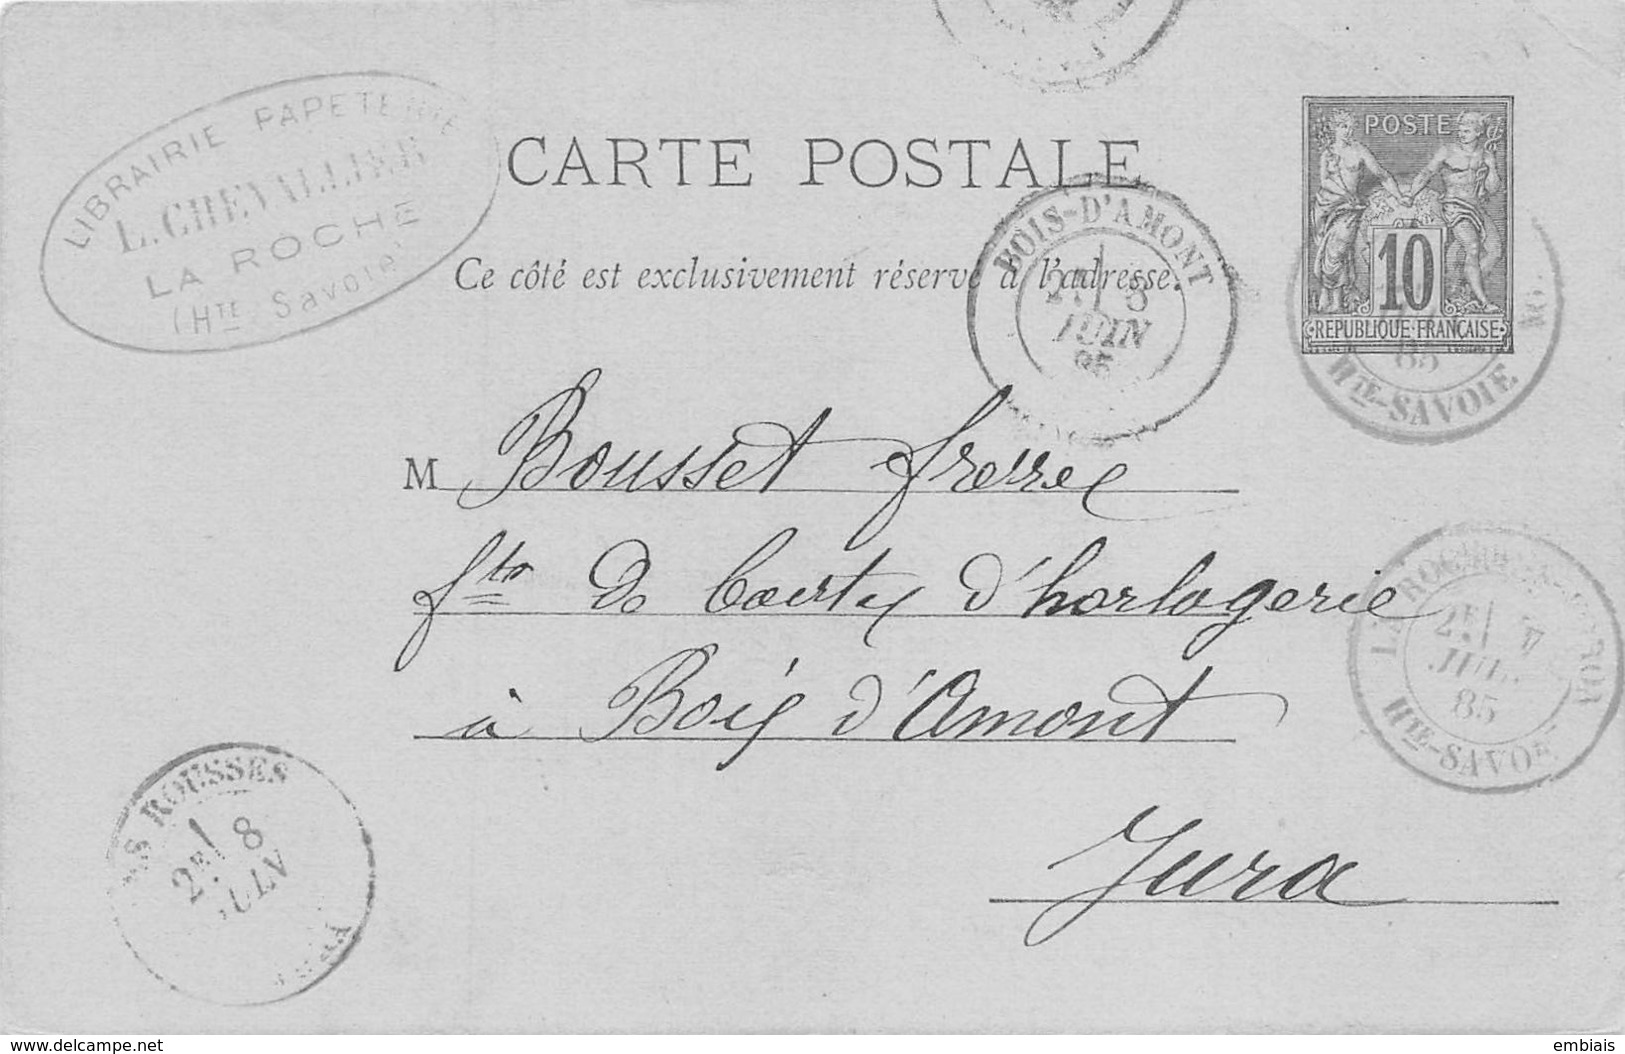 LIBRAIRIE PAPETERIE
L. CHEVALLIER
LA ROCHE
(HTE Savoie)
CARTE POSTALE
Ce côté est exclusivement réservé à l'adresse.
POSTE
10
REPUBLIQUE FRANÇAISE
85
HTE-SAVOIE
BOIS-D'AMONT
2E 8
JUIN
85
M Bousset frères
fts de Boites d'horlogerie
à Bois d'Amont
Jura
2E
85
HTE-SAVOIE
LES ROUSSES
2E 8
JUIN
delcampe.net
embiais